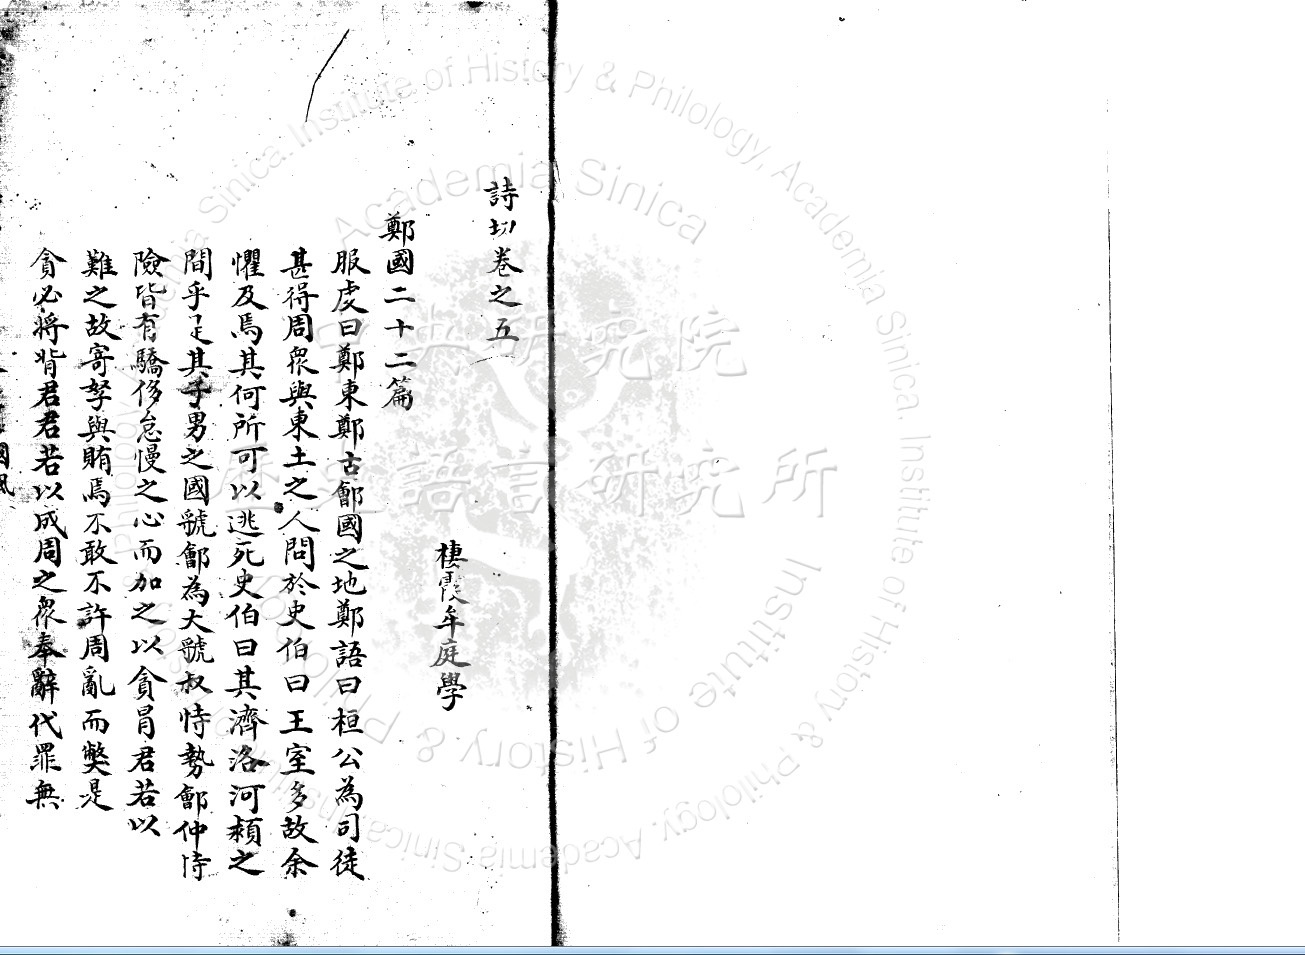 詩切卷之五
棲霞牟庭學
鄭國二十二篇
服虔曰鄭東鄭古鄶國之地鄭語曰桓公為司徒
甚得周眾與東土之人問於史伯曰王室多故余
懼及焉其何所可以逃死史伯曰其濟洛河潁之
間乎是其子男之國虢鄶為大虢叔恃勢鄶仲恃
險皆有驕侈怠慢之心而加之以貪冐君若以
難之故寄孥與賄焉不敢不許周亂而獘是
貪必將背君君若以成周之眾奉辭代罪無
國風
中央研究院
歷史語言研究所
Academia Sinica
Institute of History & Philology
Institute of History & Philology, Academia Sinica